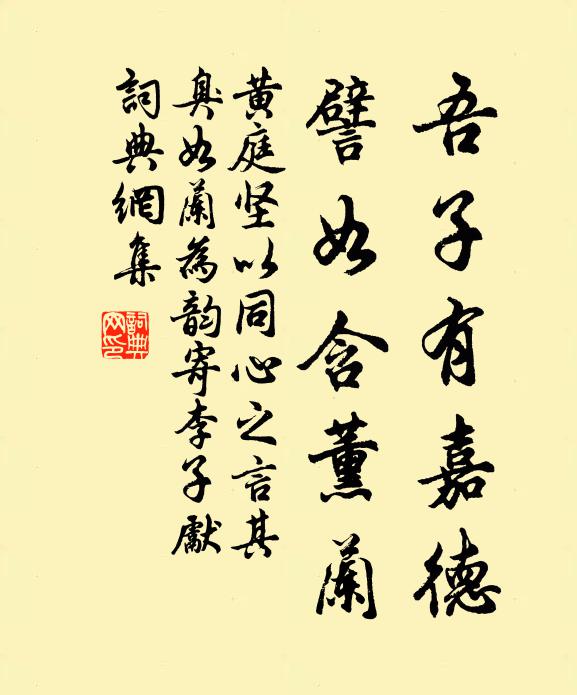 吾子有嘉德
譬如含薰蘭
黄庭坚以同心之言其
臭如蘭為韵寄李子獻
詞典網集
詞典網印